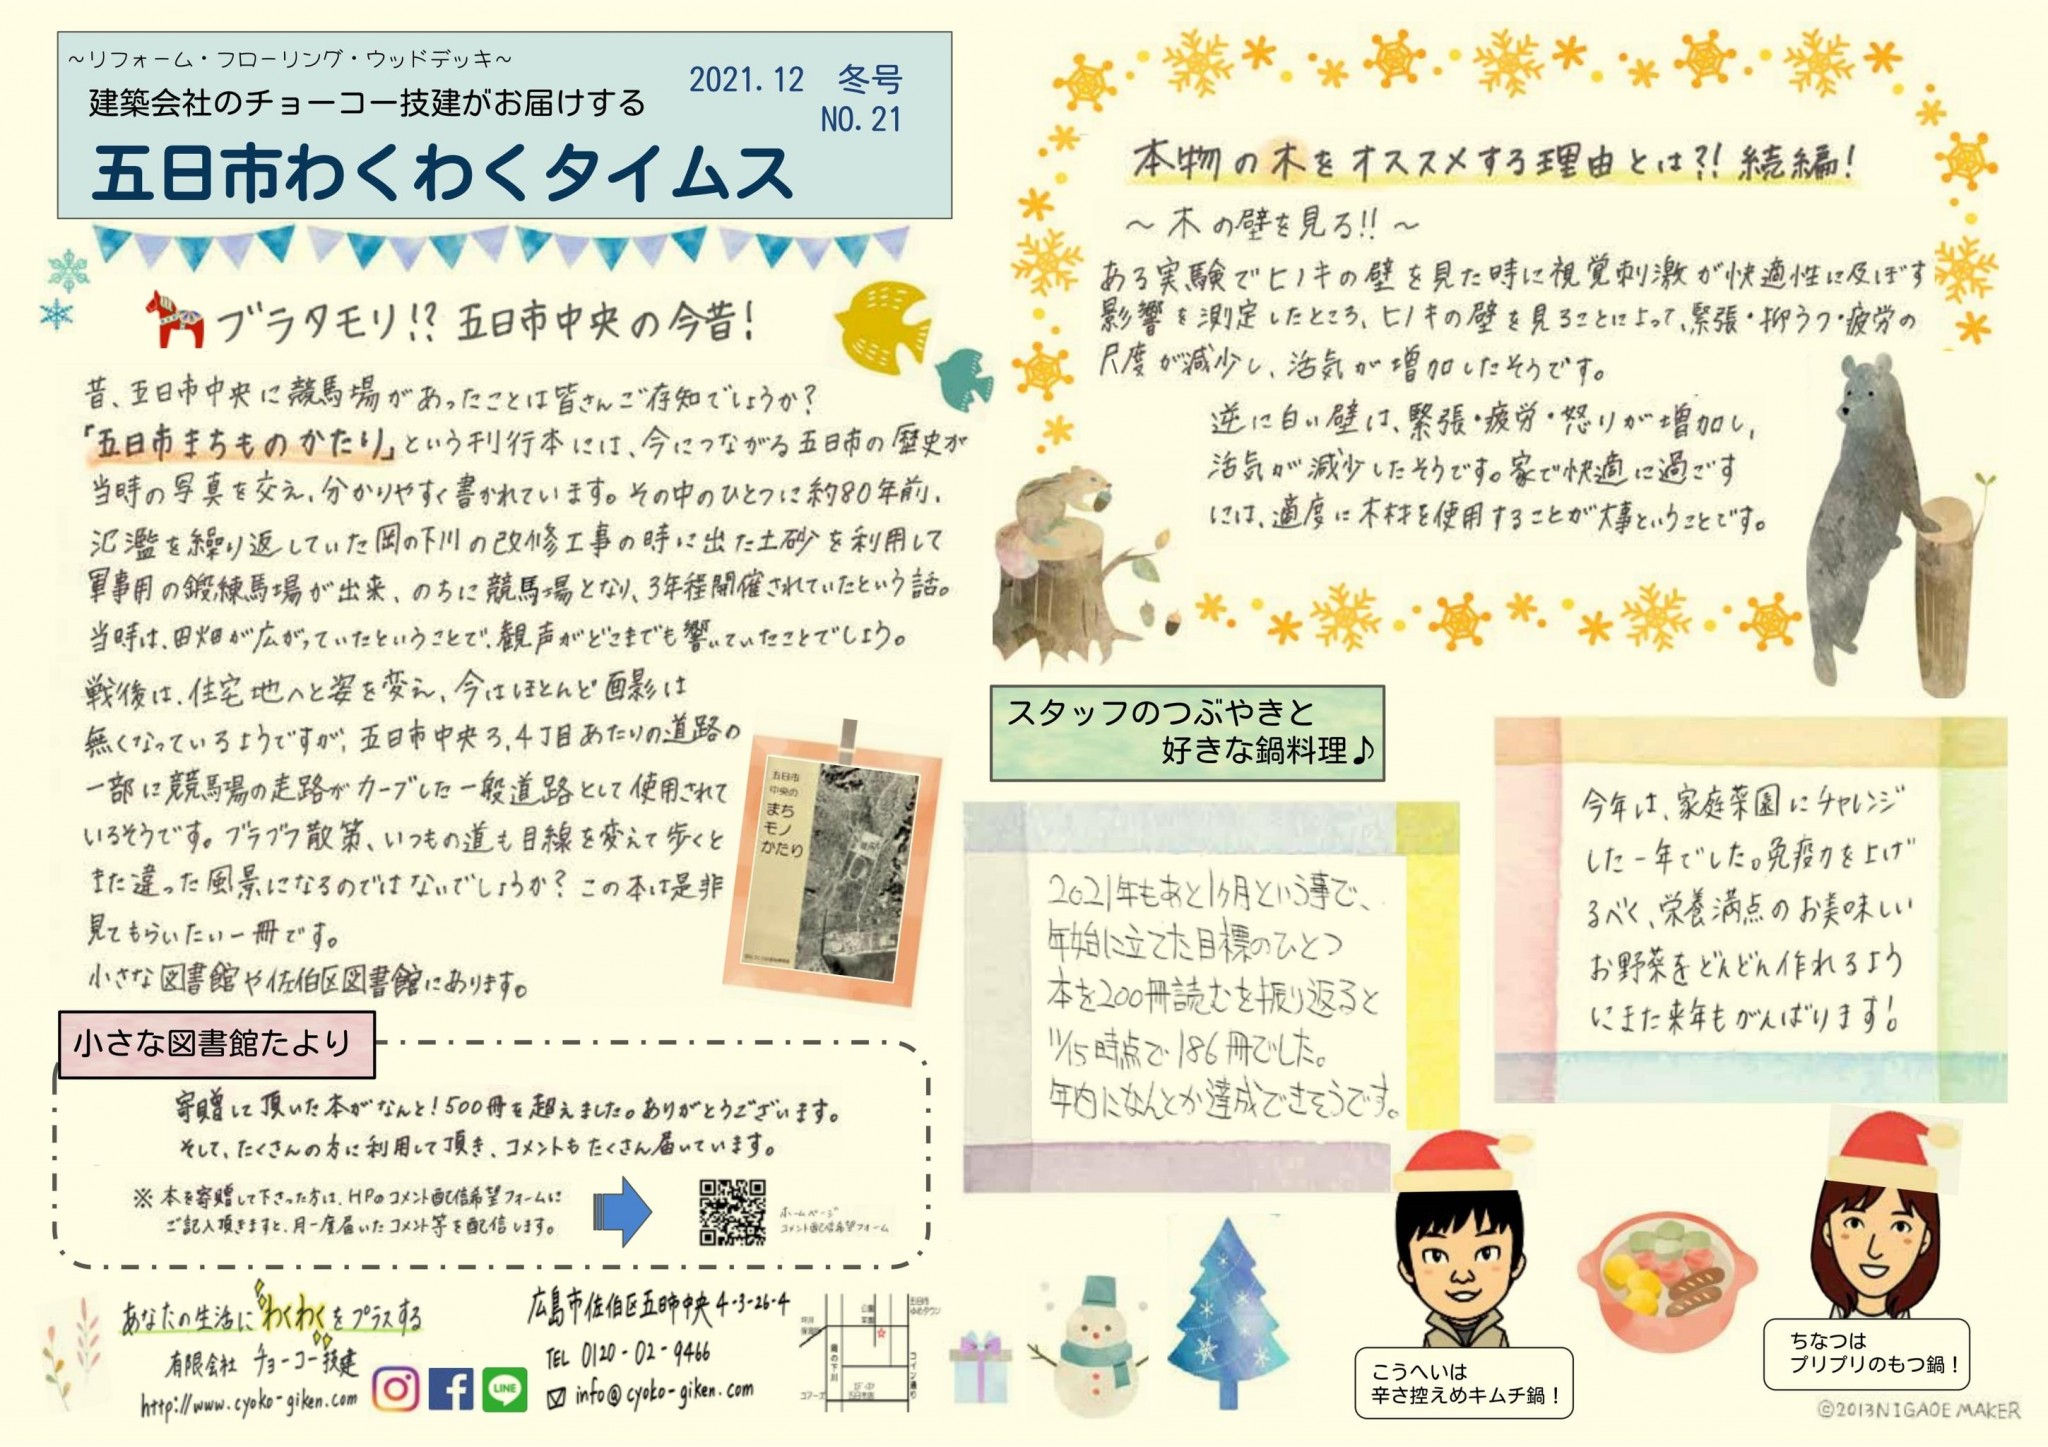 ~リフォーム・フローリング・ウッドデッキ~
建築会社のチョーコー技建がお届けする
2021.12 冬号
NO.21
五日市わくわくタイムス
ブラタモリ!? 五日市中央の今昔!
昔、五日市中央に競馬場があったことは皆さんご存知でしょうか?
『五日市まちものかたり』という刊行本には、今につながる五日市の歴史が
当時の写真を交え、分かりやすく書かれています。その中のひとつに約80年前、
氾濫を繰り返していた岡の下川の改修工事の時に出た土砂を利用して
軍事用の鍛練馬場が出来、のちに競馬場となり、3年程開催されていたという話。
当時は、田畑が広がっていたということで、観声がどこまでも響いていたことでしょう。
戦後は、住宅地へと姿を変え、今はほとんど面影は
無くなっているようですが、五日市中央3,4丁目あたりの道路の
一部に競馬場の走路がカーブした一般道路として使用されて
いるそうです。ブラブラ散策、いつもの道も目線を変えて歩くと
また違った風景になるのではないでしょうか? この本は是非
見てもらいたい一冊です。
小さな図書館や佐伯区図書館にあります。
五日市
中央の
まち
モノ
かたり
小さな図書館たより
寄贈して頂いた本がなんと!500冊を超えました。ありがとうございます。
そして、たくさんの方に利用して頂き、コメントもたくさん届いています。
※ 本を寄贈して下さった方は、HPのコメント配信希望フォームに
ご記入頂きますと、月一度届いたコメント等を配信します。
ホームページ
コメント配信希望フォーム
あなたの生活にわくわくをプラスする
有限会社 チョーコー技建
http://www.cyoko-giken.com
LINE
広島市佐伯区五日市中央4-3-26-4
TEL 0120-02-9466
info@cyoko-giken.com
五日市
ゆめタウン
公園
岡の下川
コイン通り
コアーズ
本物の木をオススメする理由とは?! 続編!
~木の壁を見る!!~
ある実験でヒノキの壁を見た時に視覚刺激が快適性に及ぼす
影響を測定したところ、ヒノキの壁を見ることによって、緊張・抑うつ・疲労の
尺度が減少し、活気が増加したそうです。
逆に白い壁は、緊張・疲労・怒りが増加し、
活気が減少したそうです。家で快適に過ごす
には、適度に木材を使用することが大事ということです。
スタッフのつぶやきと
好きな鍋料理♪
2021年もあと1ヶ月という事で、
年始に立てた目標のひとつ
本を200冊読むを振り返ると
11/15時点で186冊でした。
年内になんとか達成できそうです。
今年は、家庭菜園にチャレンジ
した一年でした。免疫力を上げ
るべく、栄養満点のお美味しい
お野菜をどんどん作れるよう
にまた来年もがんばります!
こうへいは
辛さ控えめキムチ鍋!
ちなつは
プリプリのもつ鍋!
©2013NIGAOE MAKER